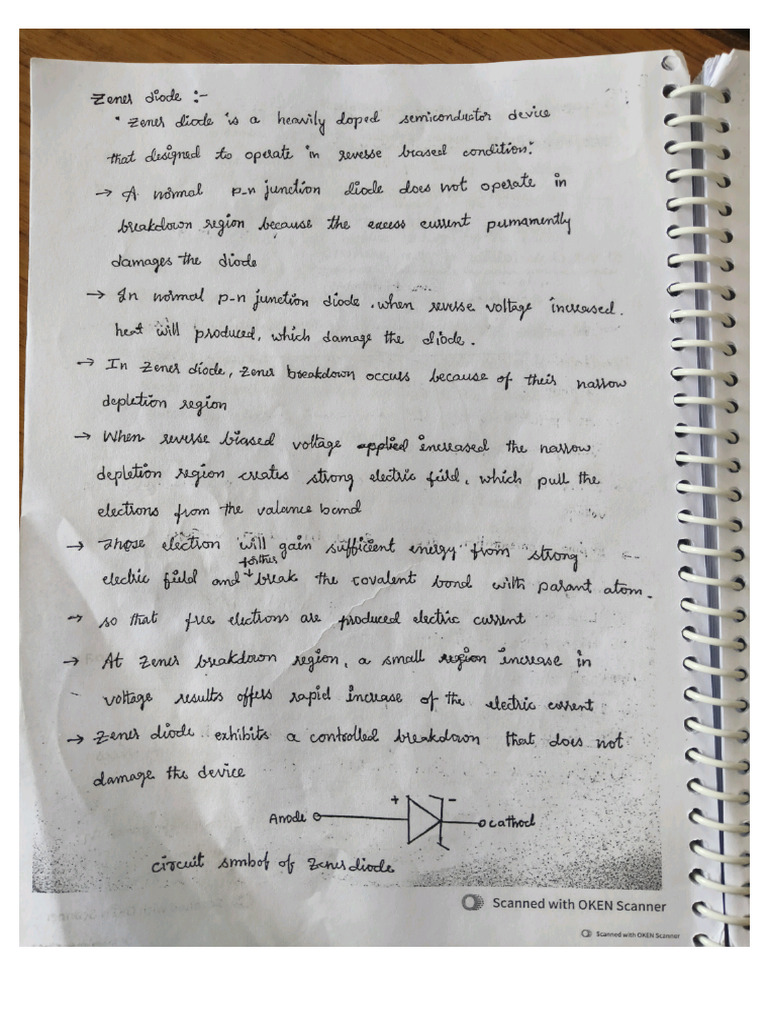 Zener diode :-
"Zener diode is a heavily doped semiconductor device
that designed to operate in reverse biased condition."
→ A normal p-n junction diode does not operate in
breakdown region because the excess current pumamently
damages the diode
→ In normal p-n junction diode, when reverse voltage increased.
heat will produced, which damage the diode.
→ In Zener diode, zener breakdown occurs because of their narrow
depletion region
→ When reverse biased voltage applied increased the narrow
depletion region creates strong electric field, which pull the
electrons from the valance band
→ Those electron will gain sufficient energy from strong
electric field and further break the covalent bond with parant atom.
→ so that free electrons are produced electric current
→ At zener breakdown region, a small region increase in
voltage results offers rapid increase of the electric current
→ Zener diode exhibits a controlled breakdown that does not
damage the device
+ -
Anode cathod
circuit smbof of Zener diode
Scanned with OKEN Scanner
Scanned with OKEN Scanner